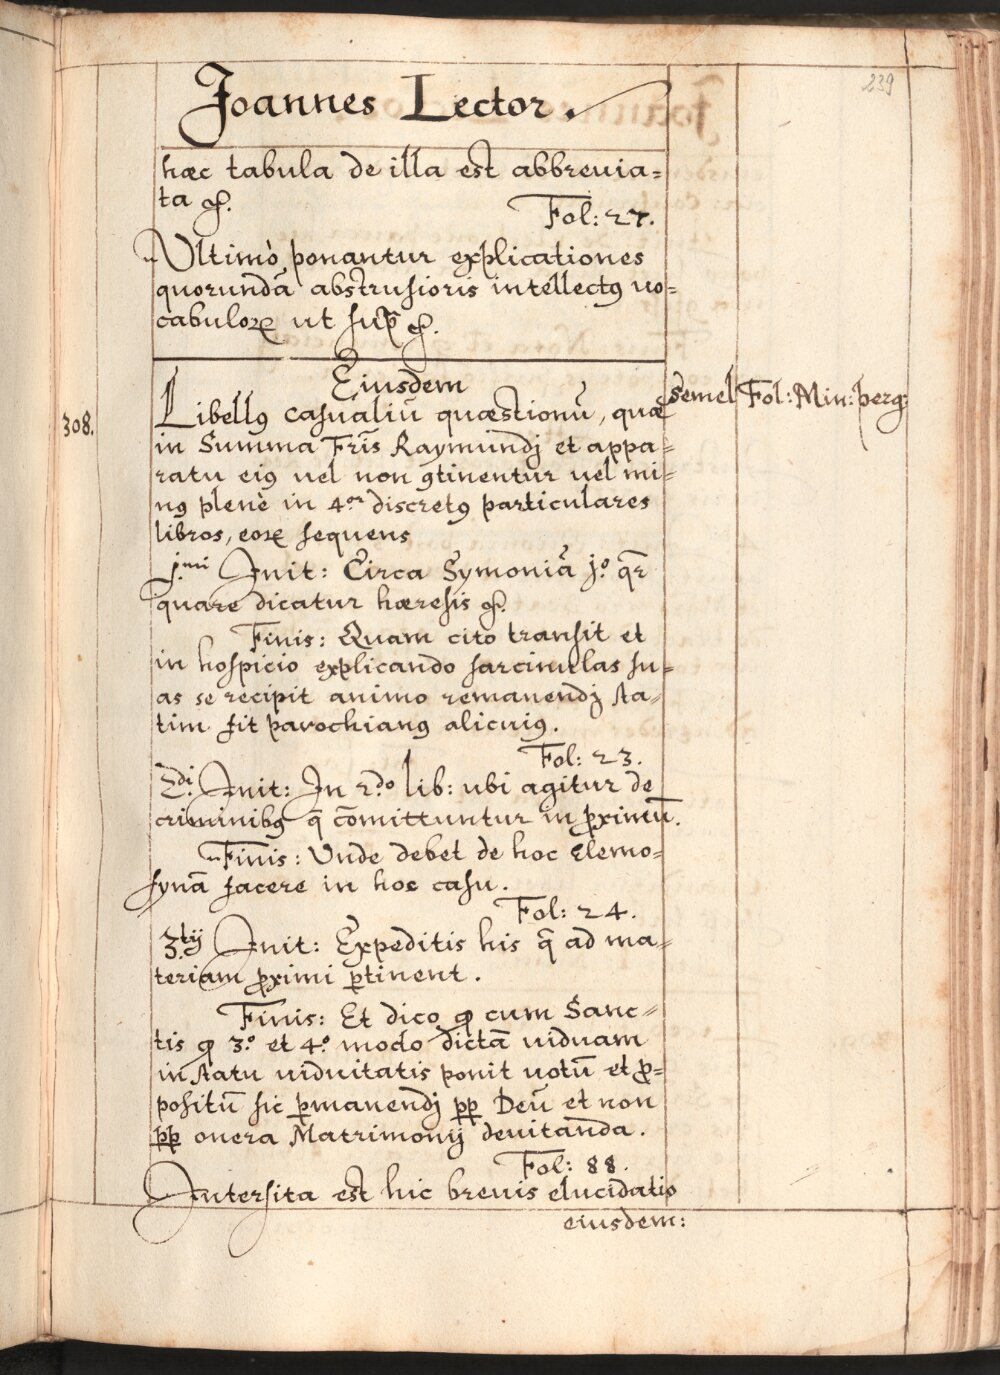 239
Joannes Lector.
hæc tabula de illa est abbreuia=
ta &.
Fol: 27.
Ultimò ponantur explicationes
quorundā abstrusioris intellectꝰ uo=
cabuloꝝ ut sup̄ &.
Eiusdem
308.
Libellꝰ casualiū quæstionū, quæ
semel
Fol: Min: perg:
in Summa Fr̄is Raymundj et appa=
ratu eiꝰ uel non ꝯtinentur uel mi=
nꝰ plenè in 4.or discretꝰ particulares
libros, eoꝝ sequens
j.mi Init: Circa Symoniā j.o qr̄
quare dicatur hæresis &.
Finis: Quam cito transit et
in hospicio explicando sarcinulas su=
as se recipit animo remanendj sta=
tim fit parochianꝰ alicuiꝰ.
Fol: 23.
2.di Init: In 2.do lib: ubi agitur de
criminibꝰ q̄ cōmittuntur in ꝓximū.
Finis: Unde debet de hoc Elemo=
synā facere in hoc casu.
Fol: 24.
3.tij Init: Expeditis his q̄ ad ma=
teriam ꝓximi ꝑtinent.
Finis: Et dico ꝙ cum Sanc=
tis ꝙ 3.o et 4.o modo dictā uiduam
in statu uiduitatis ponit uotū et ꝓ=
positū sic ꝑmanendj ꝑꝑ Deū et non
ꝑꝑ onera Matrimonij deuitanda.
Fol: 88.
Intersita est hic breuis elucidatio
eiusdem: